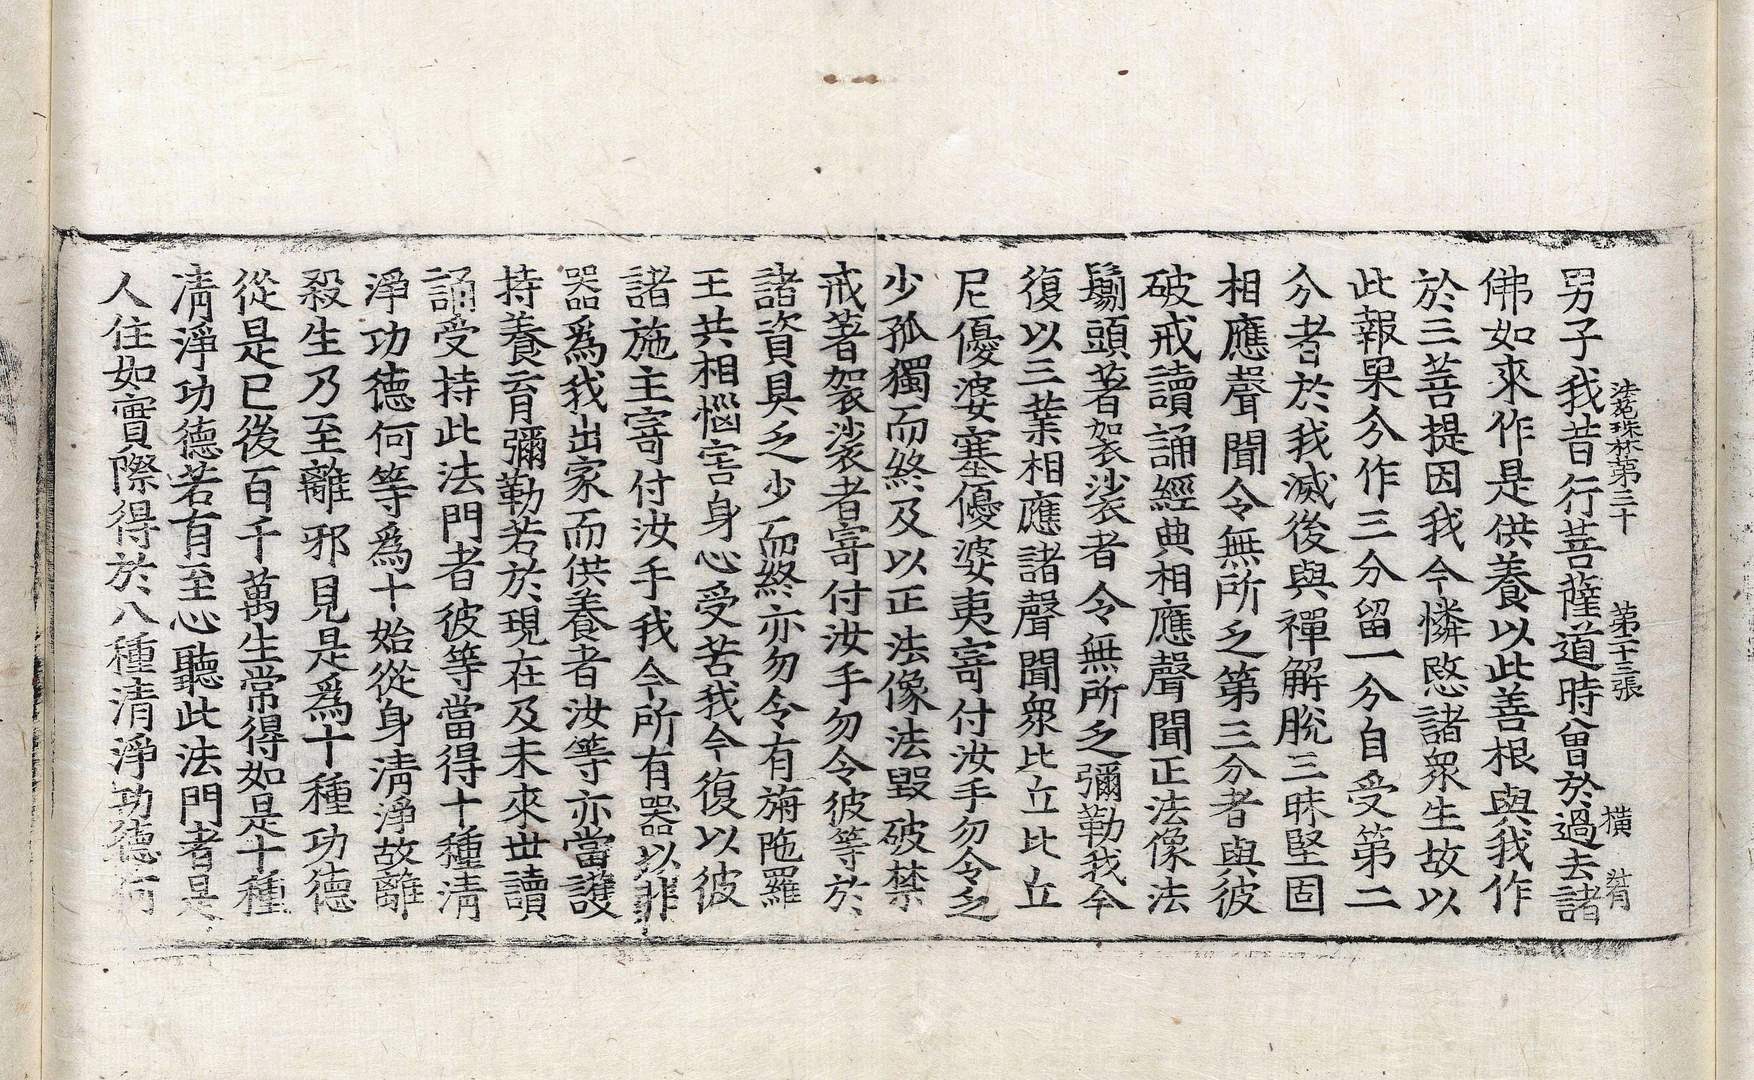 法苑珠林第三十 第二十三張 橫
男子我昔行菩薩道時曾於過去諸
佛如來作是供養以此善根與我作
於三菩提因我今憐愍諸衆生故以
此報果分作三分留一分自受第二
分者於我滅後與禪解脫三昧堅固
相應聲聞令無所乏第三分者與彼
破戒讀誦經典相應聲聞正法像法
鬀頭著袈裟者令無所乏彌勒我今
復以三業相應諸聲聞衆比丘比丘
尼優婆塞優婆夷寄付汝手勿令乏
少孤獨而終及以正法像法毀破禁
戒著袈裟者寄付汝手勿令彼等於
諸資具乏少而終亦勿令有旃陁羅
王共相惱害身心受苦我今復以彼
諸施主寄付汝手我今所有器以非
器爲我出家而供養者汝等亦當護
持養育彌勒若於現在及未來世讀
誦受持此法門者彼等當得十種清
淨功德何等爲十始從身清淨故離
殺生乃至離邪見是爲十種功德
從是已後百千萬生常得如是十種
清淨功德若有至心聽此法門者是
人住如實際得於八種清淨功德何